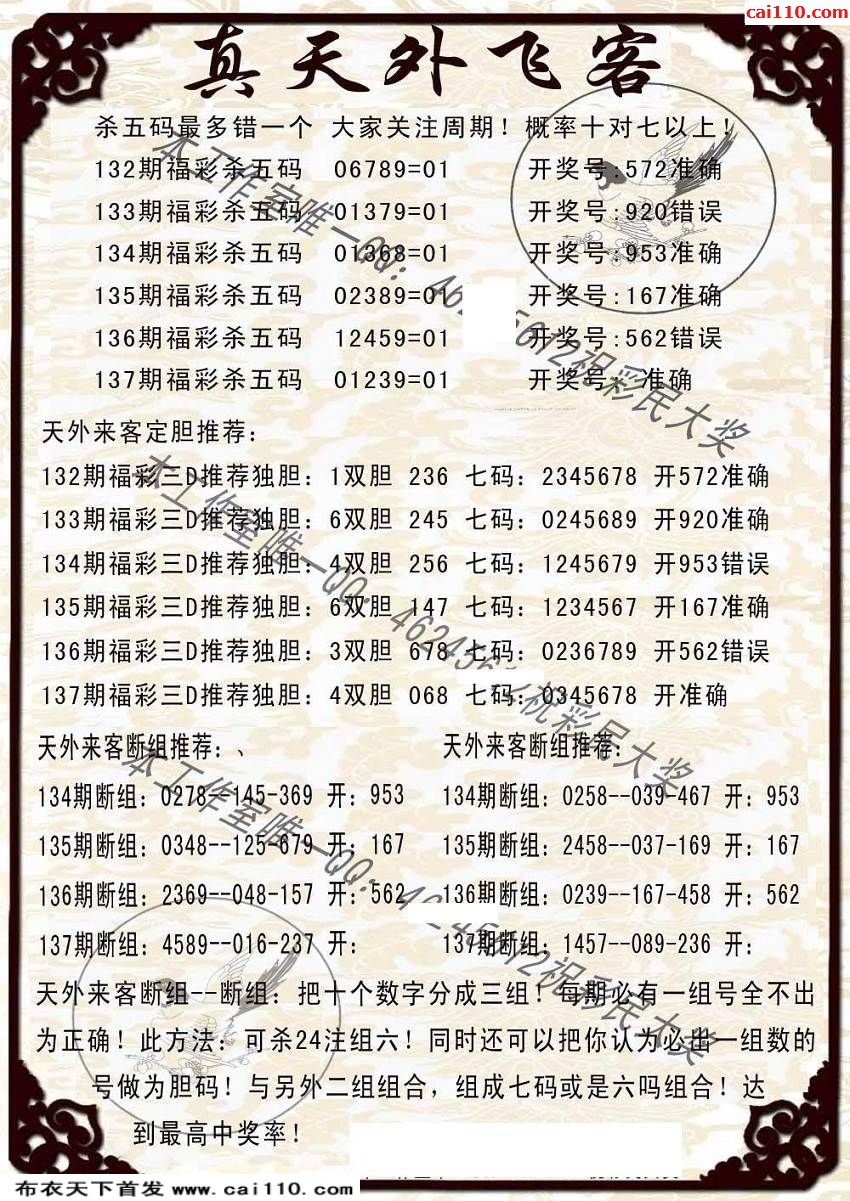 cai110.com
真天外飞客
杀五码最多错一个 大家关注周期！概率十对七以上！
132期福彩杀五码 06789=01 开奖号:572准确
133期福彩杀五码 01379=01 开奖号:920错误
134期福彩杀五码 01368=01 开奖号:953准确
135期福彩杀五码 02389=01 开奖号:167准确
136期福彩杀五码 12459=01 开奖号:562错误
137期福彩杀五码 01239=01 开奖号: 准确
天外来客定胆推荐：
132期福彩三D推荐独胆：1双胆 236 七码：2345678 开572准确
133期福彩三D推荐独胆：6双胆 245 七码：0245689 开920准确
134期福彩三D推荐独胆：4双胆 256 七码：1245679 开953错误
135期福彩三D推荐独胆：6双胆 147 七码：1234567 开167准确
136期福彩三D推荐独胆：3双胆 678 七码：0236789 开562错误
137期福彩三D推荐独胆：4双胆 068 七码：0345678 开准确
天外来客断组推荐：、 天外来客断组推荐：
134期断组：0278--145-369 开：953 134期断组：0258--039-467 开：953
135期断组：0348--125-679 开：167 135期断组：2458--037-169 开：167
136期断组：2369--048-157 开：562 136期断组：0239--167-458 开：562
137期断组：4589--016-237 开： 137期断组：1457--089-236 开：
天外来客断组--断组：把十个数字分成三组！每期必有一组号全不出
为正确！此方法：可杀24注组六！同时还可以把你认为必出一组数的
号做为胆码！与另外二组组合，组成七码或是六吗组合！达
到最高中奖率！
本工作室唯一QQ：祝彩民大奖
本工作室唯一QQ：祝彩民大奖
本工作室唯一QQ：祝彩民大奖
布衣天下首发 www.cai110.com